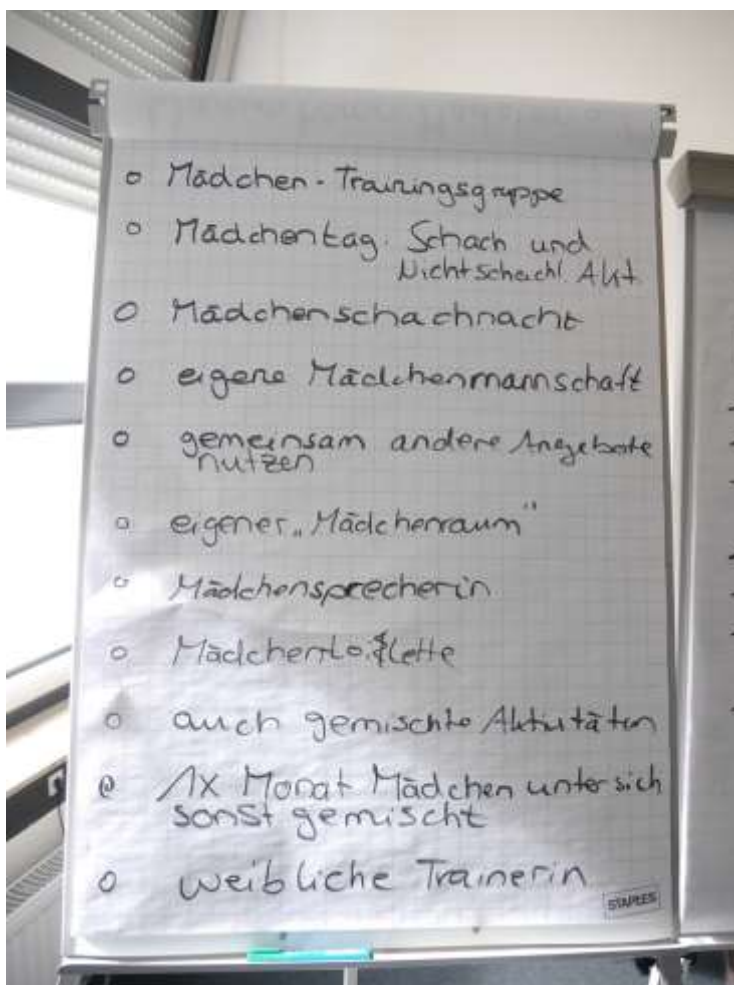 o Mädchen - Trainingsgruppe
o Mädchentag: Schach und
Nichtschachl. Akt.
o Mädchenschachnacht
o eigene Mädchenmannschaft
o gemeinsam andere Angebote
nutzen
o eigener „Mädchenraum"
o Mädchensprecherin
o Mädchentoilette
o auch gemischte Aktivitäten
o 1x Monat Mädchen unter sich
sonst gemischt
o weibliche Trainerin
STAPLES